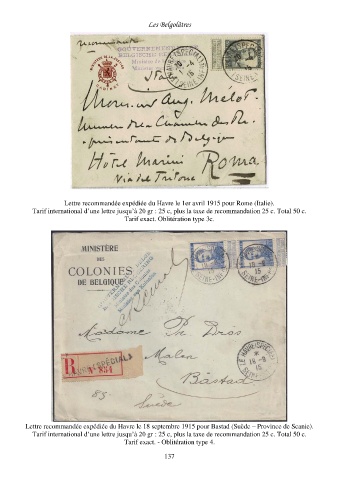 Les Belgolâtres
recommandée
GOUVERNEMENT
Monsieur Aug. Mélot
Membre de la Chambre des Re-
présentants de Belgique
Hôtel Marini Roma
Via del Tritone
Lettre recommandée expédiée du Havre le 1er avril 1915 pour Rome (Italie).
Tarif international d'une lettre jusqu'à 20 gr : 25 c, plus la taxe de recommandation 25 c. Total 50 c.
Tarif exact. Oblitération type 3c.
MINISTÈRE
DES
COLONIES
DE BELGIQUE
Madame Ph. Dros
Malen
Båstad
Suède
R
LE HAVRE (SPECIAL)
N° 834
LE HAVRE (SPECIAL)
18-9
15
SEINE-INF
Lettre recommandée expédiée du Havre le 18 septembre 1915 pour Bastad (Suède – Province de Scanie).
Tarif international d'une lettre jusqu'à 20 gr : 25 c, plus la taxe de recommandation 25 c. Total 50 c.
Tarif exact. - Oblitération type 4.
137